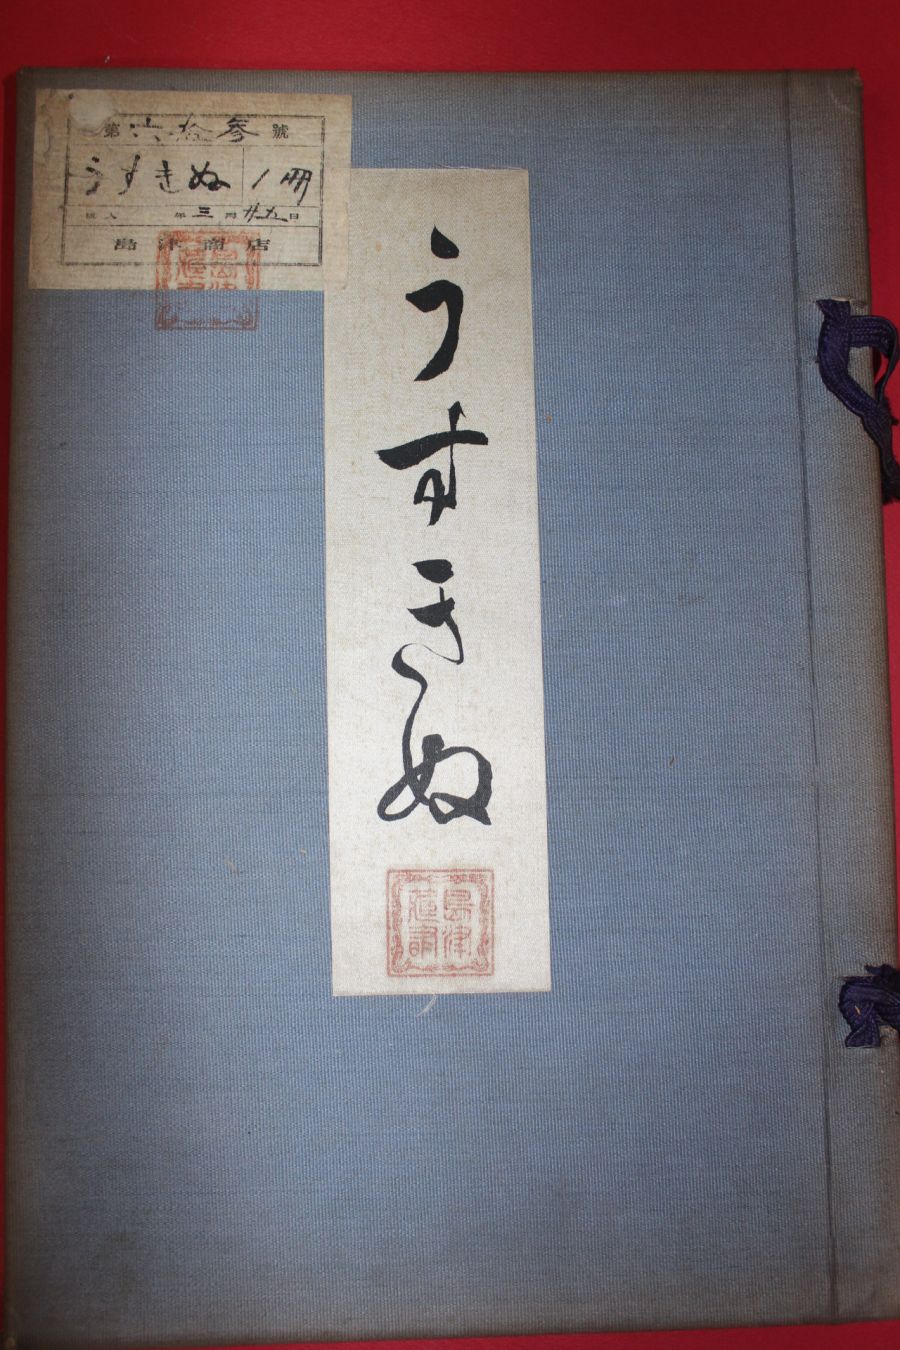 第六拾参號
うすきぬ 1冊
購入 年三月廿五日
島津商店
うすきぬ
島津
蔵書